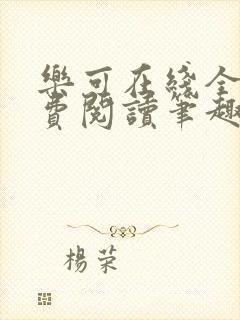 樂可在綫全
費閱讀筆趣
楊荣